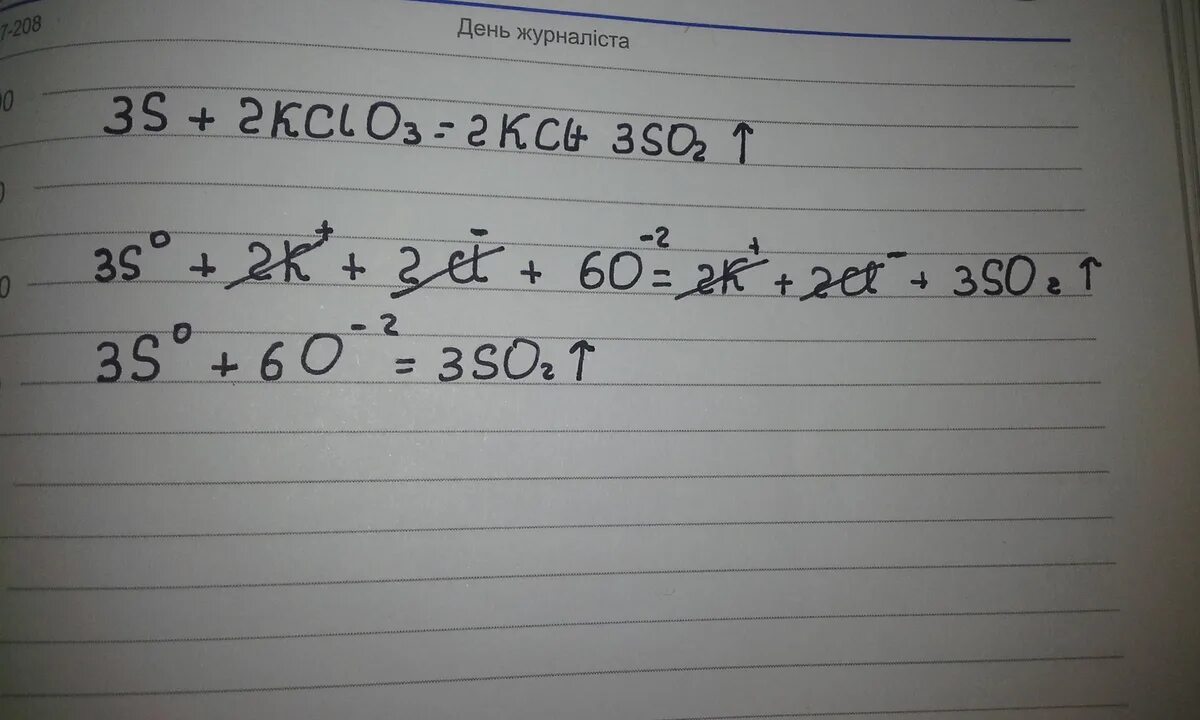 7-208
День журналіста
3S + 2KClO₃ = 2KCl + 3SO₂ ↑
3S⁰ + 2K⁺ + 2Cl⁻ + 6O⁻² = 2K⁺ + 2Cl⁻ + 3SO₂ ↑
3S⁰ + 6O⁻² = 3SO₂ ↑